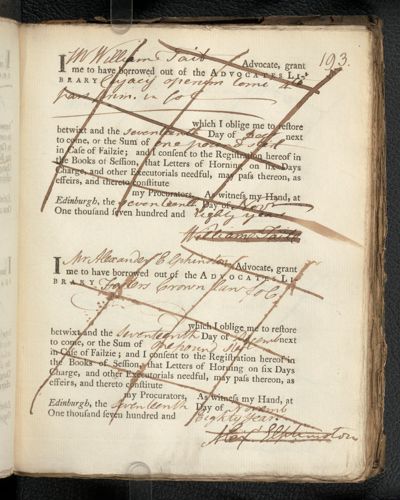 193.
I Mr William Tait Advocate, grant
me to have borrowed out of the ADVOCATES LI-
BRARY Cujacii opera
which I oblige me to restore
betwixt and the seventeenth Day of next
to come, or the Sum of one pound
in Case of Failzie; and I consent to the Registration hereof in
the Books of Session, that Letters of Horning on six Days
Charge, and other Executorials needful, may pass thereon, as
effeirs, and thereto constitute
my Procurators, As witness my Hand, at
Edinburgh, the seventeenth Day of Novr
One thousand seven hundred and eighty years
William Tait
I Mr Alexander Elphinston Advocate, grant
me to have borrowed out of the ADVOCATES LI-
BRARY Crown Law
which I oblige me to restore
betwixt and the seventeenth Day of Decemb next
to come, or the Sum of one pound
in Case of Failzie; and I consent to the Registration hereof in
the Books of Session, that Letters of Horning on six Days
Charge, and other Executorials needful, may pass thereon, as
effeirs, and thereto constitute
my Procurators, As witness my Hand, at
Edinburgh, the seventeenth Day of Novemb
One thousand seven hundred and Eighty years
Alexr Elphinston